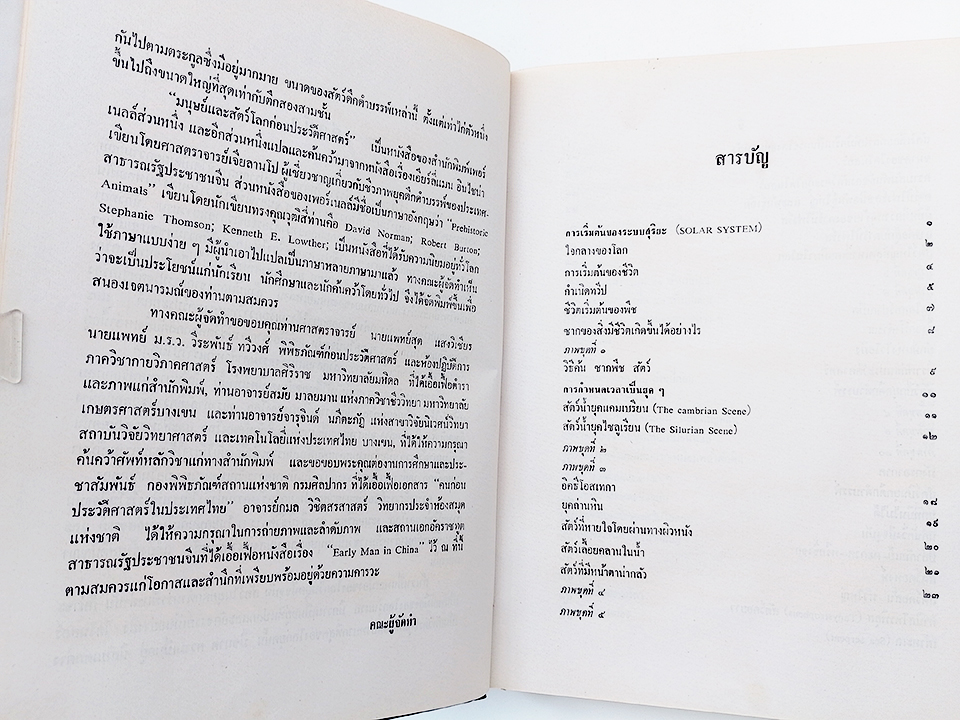 กันไปตามตระกูลซึ่งมีอยู่มากมาย ขนาดของสัตว์ดึกดำบรรพ์เหล่านี้ ตั้งแต่เท่าไก่ตัวหนึ่ง
ขึ้นไปถึงขนาดใหญ่ที่สุดเท่ากับตึกสองสามชั้น
"มนุษย์และสัตว์โลกก่อนประวัติศาสตร์" เป็นหนังสือของสำนักพิมพ์เพอร์
เนลล์ส่วนหนึ่ง และอีกส่วนหนึ่งแปลและค้นคว้ามาจากหนังสือเอียร์ลี่แมน อินไชน่า
เขียนโดยศาสตราจารย์เจียลานโป ผู้เชี่ยวชาญเกี่ยวกับชีวภาพยุคดึกดำบรรพ์ของประเทศ-
สาธารณรัฐประชาชนจีน ส่วนหนังสือของเพอร์เนลล์มีชื่อเป็นภาษาอังกฤษว่า "Prehistoric
Animals" เขียนโดยนักเขียนทรงคุณวุฒิสี่ท่านคือ David Norman; Robert Burton;
Stephanie Thomson; Kenneth E. Lowther; เป็นหนังสือที่ได้รับความนิยมอยู่ทั่วโลก
ใช้ภาษาแบบง่าย ๆ มีผู้นำเอาไปแปลเป็นภาษาหลายภาษามาแล้ว ทางคณะผู้จัดทำเห็น
ว่าจะเป็นประโยชน์แก่นักเรียน นักศึกษาและนักค้นคว้าโดยทั่วไป จึงได้จัดพิมพ์ขึ้นเพื่อ
สนองเจตนารมณ์ของท่านตามสมควร
ทางคณะผู้จัดทำขอขอบคุณท่านศาสตราจารย์ นายแพทย์สุด แสงวิเชียร
นายแพทย์ ม.ร.ว. วีระพันธ์ ทวีวงศ์ พิพิธภัณฑ์ก่อนประวัติศาสตร์ และห้องปฏิบัติการ
ภาควิชากายวิภาคศาสตร์ โรงพยาบาลศิริราช มหาวิทยาลัยมหิดล ที่ได้เอื้อเฟื้อตำรา
และภาพแก่สำนักพิมพ์, ท่านอาจารย์สมัย มาลยมาน แห่งภาควิชาชีววิทยา มหาวิทยาลัย
เกษตรศาสตร์บางเขน และท่านอาจารย์จารุจินต์ นภีตะภัฏ แห่งสาขาวิจัยนิเวศน์วิทยา
สถาบันวิจัยวิทยาศาสตร์ และเทคโนโลยีแห่งประเทศไทย บางเขน, ที่ได้ให้ความกรุณา
ค้นคว้าศัพท์หลักวิชาแก่ทางสำนักพิมพ์ และขอขอบพระคุณต่องานการศึกษาและประ-
ชาสัมพันธ์ กองพิพิธภัณฑ์สถานแห่งชาติ กรมศิลปากร ที่ได้เอื้อเฟื้อเอกสาร "คนก่อน
ประวัติศาสตร์ในประเทศไทย" อาจารย์กมล วิชิตสรสาสตร์ วิทยากรประจำห้องสมุด
แห่งชาติ ได้ให้ความกรุณาในการถ่ายภาพและลำดับภาพ และสถานเอกอัครราชทูต
สาธารณรัฐประชาชนจีนที่ได้เอื้อเฟื้อหนังสือเรื่อง "Early Man in China" ไว้ ณ ที่นี้
ตามสมควรแก่โอกาสและสำนึกที่เพรียบพร้อมอยู่ด้วยความคารวะ
คณะผู้จัดทำ
สารบัญ
การเริ่มต้นของระบบสุริยะ (SOLAR SYSTEM) ๑
ใจกลางของโลก ๒
การเริ่มต้นของชีวิต ๔
กำเนิดทวีป ๕
ชีวิตเริ่มต้นของพืช ๗
ซากของสิ่งมีชีวิตเกิดขึ้นได้อย่างไร ๘
ภาพชุดที่ ๑
วิธีค้น ซากพืช สัตว์ ๙
การกำหนดเวลาเป็นยุค ๆ ๑๑
สัตว์น้ำยุคแคมเบรียน (The cambrian Scene) ๑๑
สัตว์น้ำยุคไซลูเรียน (The Silurian Scene) ๑๒
ภาพชุดที่ ๒
ภาพชุดที่ ๓
อิคธีโอสเทกา
ยุคถ่านหิน ๑๘
สัตว์ที่หายใจโดยผ่านทางผิวหนัง ๑๙
สัตว์เลื้อยคลานในน้ำ ๒๐
สัตว์ที่มีหน้าตาน่ากลัว ๒๑
ภาพชุดที่ ๔ ๒๓
ภาพชุดที่ ๕